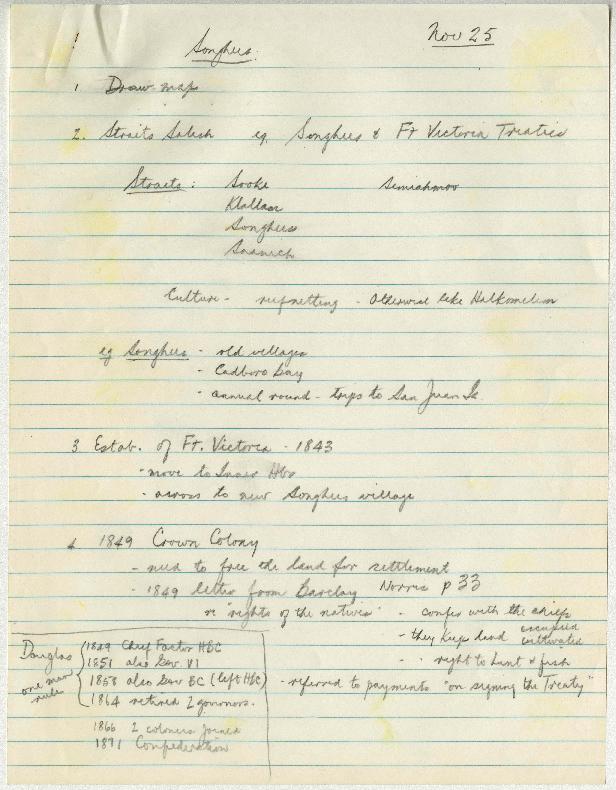 Nov 25
Songhees.
1. Draw map
2. Straits Salish eg. Songhees & Ft Victoria Treaties
Straits: Sooke Semiahmoo
Klallam
Songhees
Saanich
Culture - reefnetting - Otherwise like Halkomelem
eg Songhees - old villages
- Cadboro Bay
- annual round - trips to San Juan Is.
3 Estab. of Ft. Victoria - 1843
- move to Inner Hbr
- across to new Songhees village
4 1849 Crown Colony
- need to free the land for settlement
- 1849 letter from Barclay Norris p 33
re "rights of the natives" - confer with the chiefs
- they keep land occupied cultivated
- right to hunt & fish
- referred to payments "on signing the Treaty"
Douglas one man rule
1849 Chief Factor HBC
1851 also Gov VI
1858 also Gov BC (left HBC)
1864 retired 2 governors.
1866 2 colonies joined
1871 Confederation